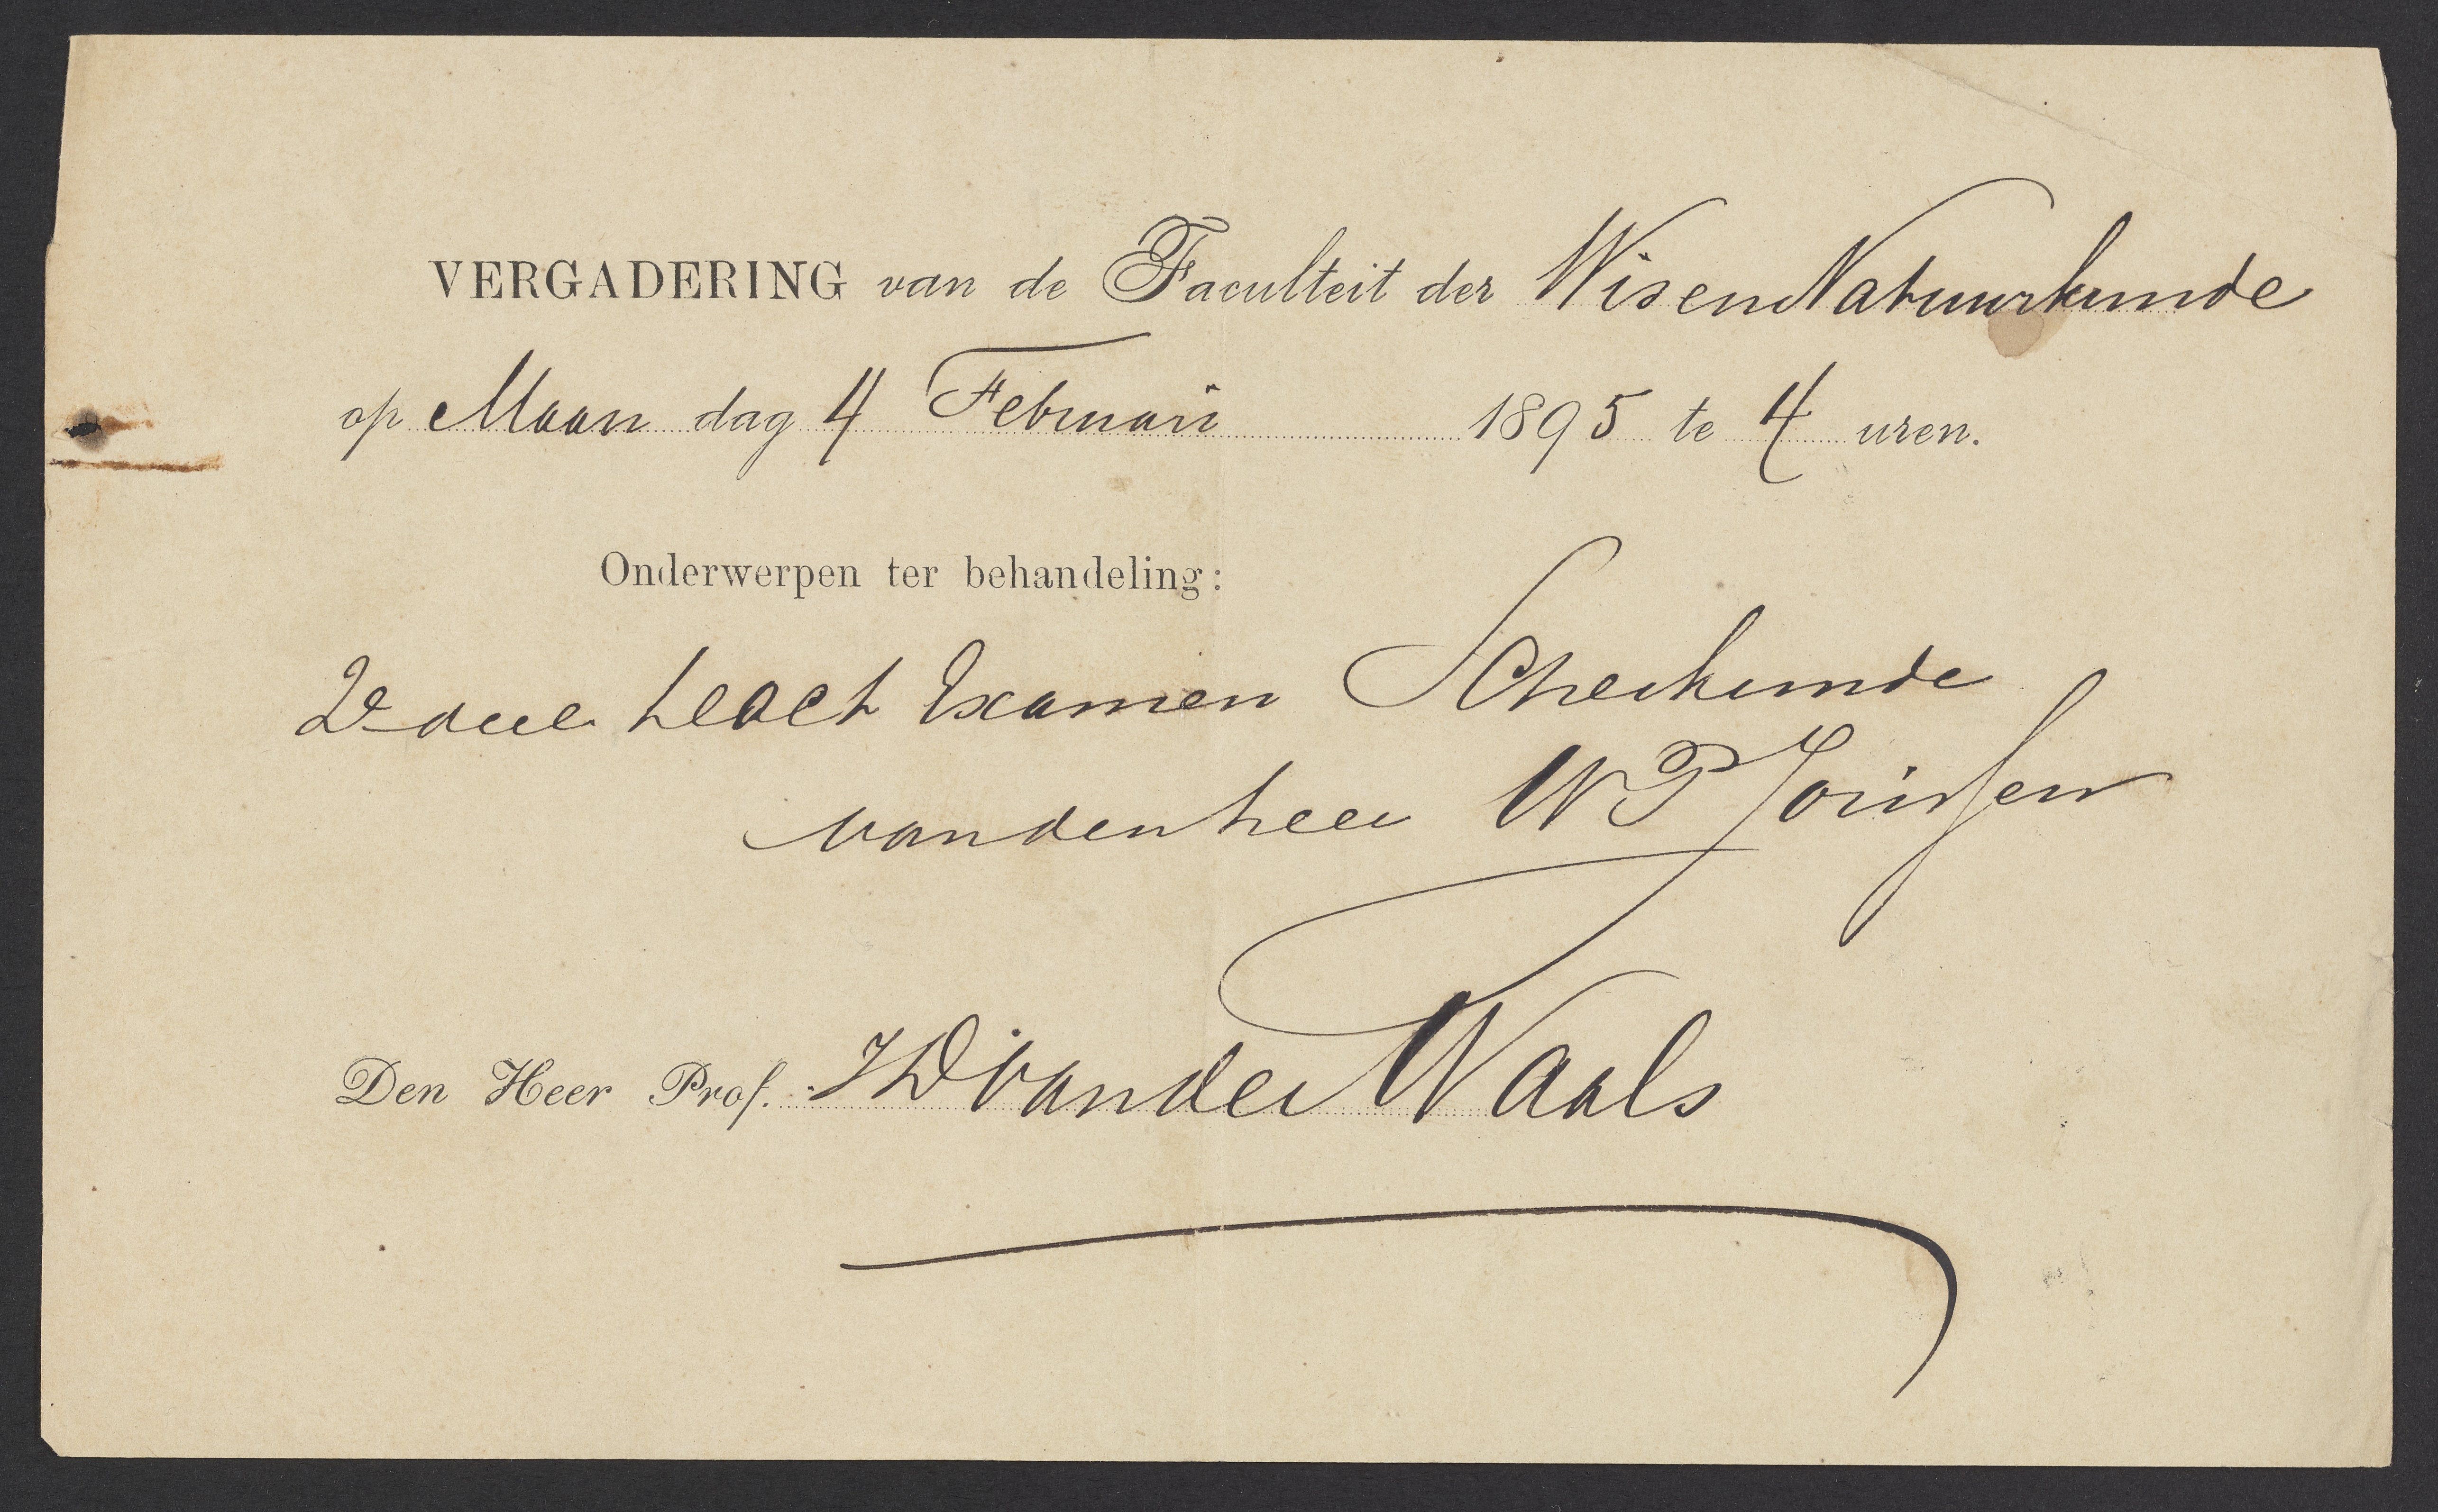 VERGADERING van de Faculteit der Wis en Natuurkunde
op Maandag 4 Februari 1895 te 4 uren.
Onderwerpen ter behandeling:
2e deel Examen Scheikunde
van den heer W P Jorissen
Den Heer Prof. J D van der Waals